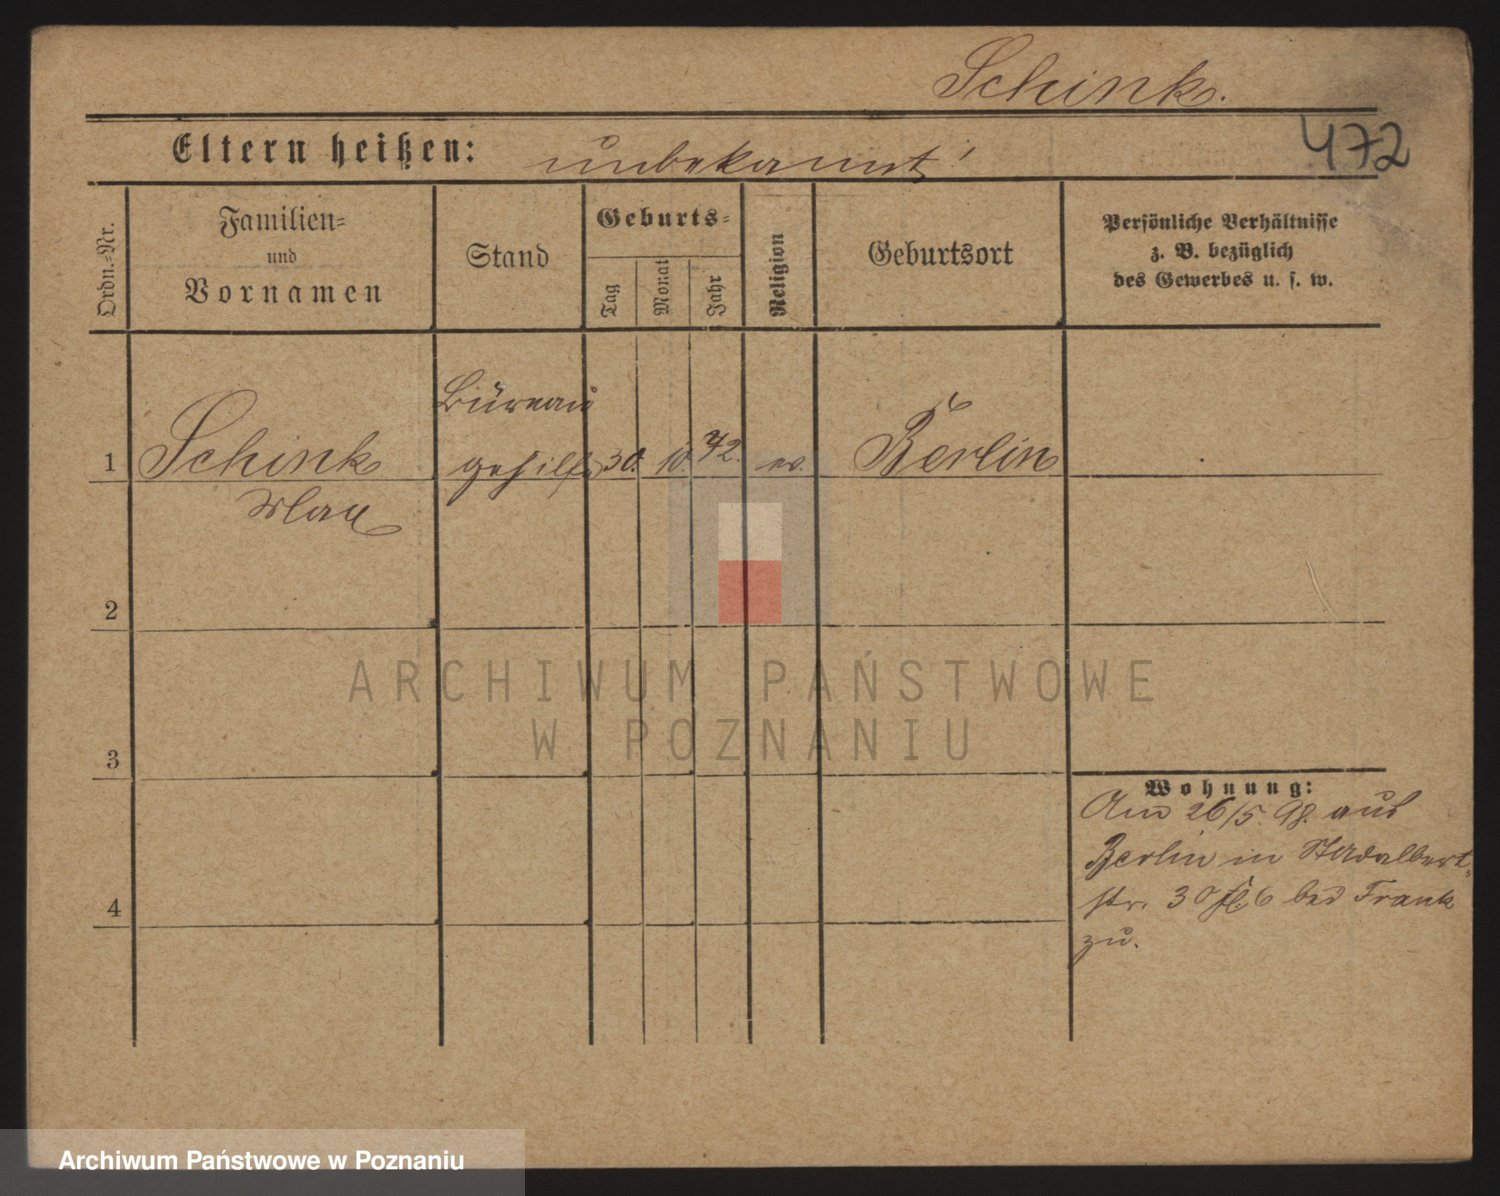 Schink.
472
Eltern heißen: unbekannt
Ordn.-Nr.
Familien-
und
Vornamen
Stand
Geburts-
Tag
Monat
Jahr
Religion
Geburtsort
Persönliche Verhältnisse
z. B. bezüglich
des Gewerbes u. s. w.
1
Schink
Max
Büreau
gehilfe
30.
10.
72.
ev.
Berlin
2
3
4
Wohnung:
Am 26/5. 98. aus
Berlin in St Adalbert-
str. 30 6 bei Frank
zu.
ARCHIWUM PAŃSTWOWE
W POZNANIU
Archiwum Państwowe w Poznaniu